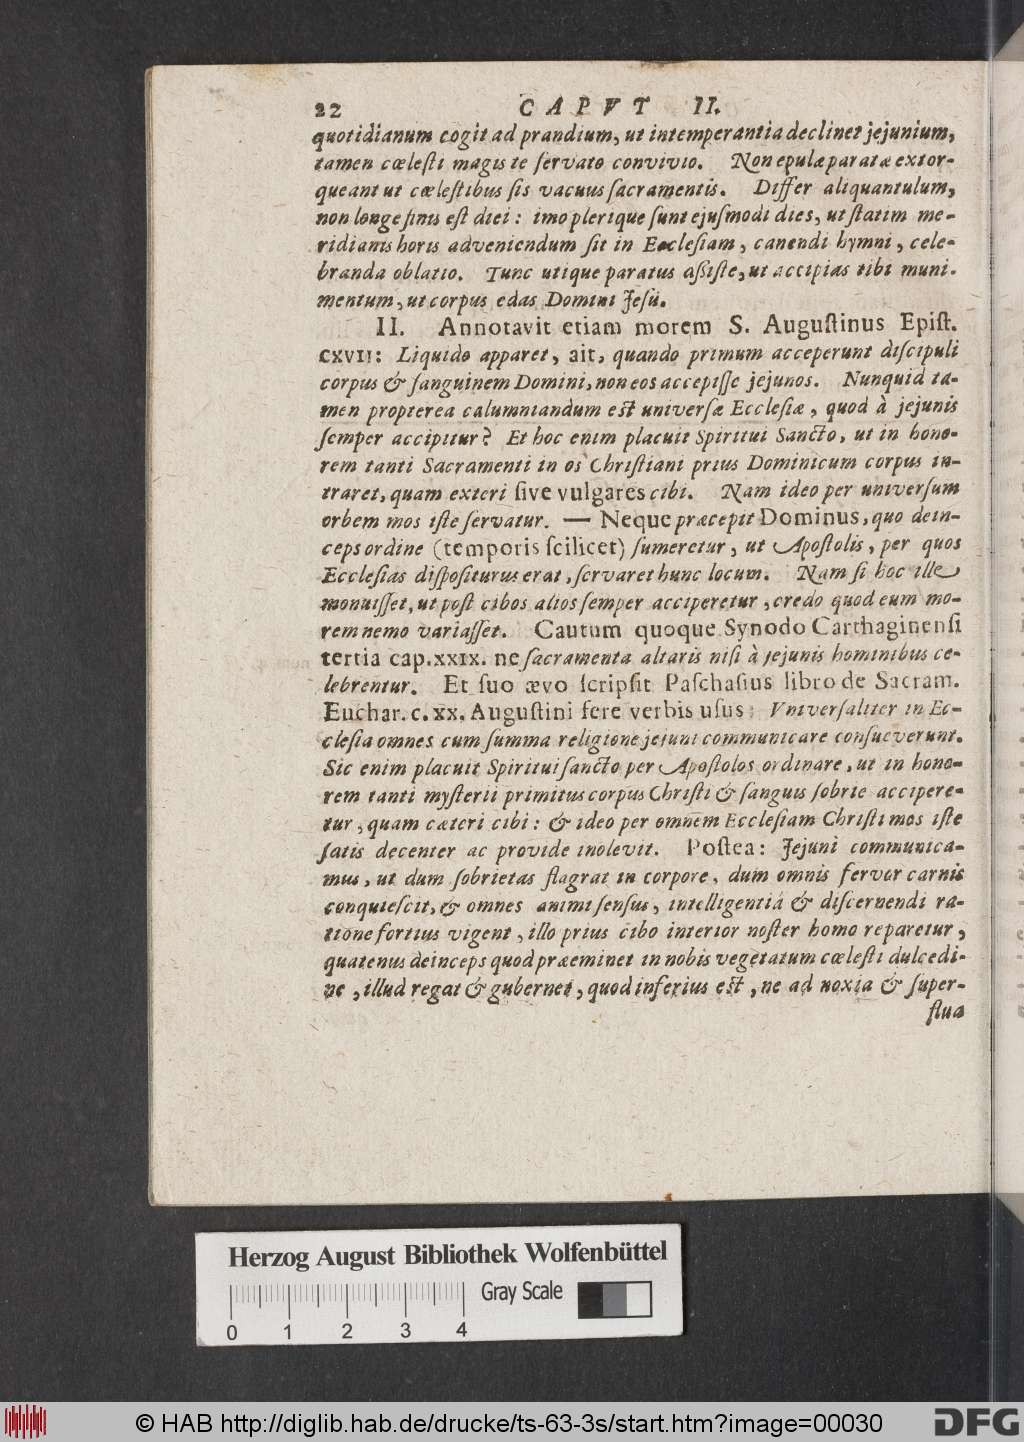 22 CAPVT II.
quotidianum cogit ad prandium, ut intemperantia declinet jejunium,
tamen cœleſti magis te ſervato convivio. Non epulæ paratæ extor-
queant ut cœleſtibus ſis vacuus ſacramentis. Differ aliquantulum,
non longe finis eſt diei: imo plerique ſunt ejuſmodi dies, ut ſtatim me-
ridianis horis adveniendum ſit in Eccleſiam, canendi hymni, cele-
branda oblatio. Tunc utique paratus aßiſte, ut accipias tibi muni-
mentum, ut corpus edas Domini Jeſu.
II. Annotavit etiam morem S. Auguſtinus Epiſt.
CXVII: Liquido apparet, ait, quando primum acceperunt diſcipuli
corpus & ſanguinem Domini, non eos accepiſſe jejunos. Nunquid ta-
men propterea calumniandum eſt univerſæ Eccleſiæ, quod à jejunis
ſemper accipitur? Et hoc enim placuit Spiritui Sancto, ut in hono-
rem tanti Sacramenti in os Chriſtiani prius Dominicum corpus in-
traret, quam exteri ſive vulgares cibi. Nam ideo per univerſum
orbem mos iſte ſervatur. — Neque præcepit Dominus, quo dein-
ceps ordine (temporis ſcilicet) ſumeretur, ut Apoſtolis, per quos
Eccleſias diſpoſiturus erat, ſervaret hunc locum. Nam ſi hoc ille
monuiſſet, ut poſt cibos alios ſemper acciperetur, credo quod eum mo-
rem nemo variaſſet. Cautum quoque Synodo Carthaginenſi
tertia cap. XXIX. ne ſacramenta altaris niſi à jejunis hominibus ce-
lebrentur. Et ſuo ævo ſcripſit Paſchaſius libro de Sacram.
Euchar. c. XX. Auguſtini fere verbis uſus: Vniverſaliter in Ec-
cleſia omnes cum ſumma religione jejuni communicare conſueverunt.
Sic enim placuit Spiritui ſancto per Apoſtolos ordinare, ut in hono-
rem tanti myſterii primitus corpus Chriſti & ſanguis ſobrie accipere-
tur, quam cæteri cibi: & ideo per omnem Eccleſiam Chriſti mos iſte
ſatis decenter ac provide inolevit. Poſtea: Jejuni communica-
mus, ut dum ſobrietas flagrat in corpore, dum omnis fervor carnis
conquieſcit, & omnes animi ſenſus, intelligentiâ & diſcernendi ra-
tione fortius vigent, illo prius cibo interior noſter homo reparetur,
quatenus deinceps quod præeminet in nobis vegetatum cœleſti dulcedi-
ne, illud regat & gubernet, quod inferius eſt, ne ad noxia & ſuper-
flua
Herzog August Bibliothek Wolfenbüttel
Gray Scale
0 1 2 3 4
© HAB http://diglib.hab.de/drucke/ts-63-3s/start.htm?image=00030
DFG